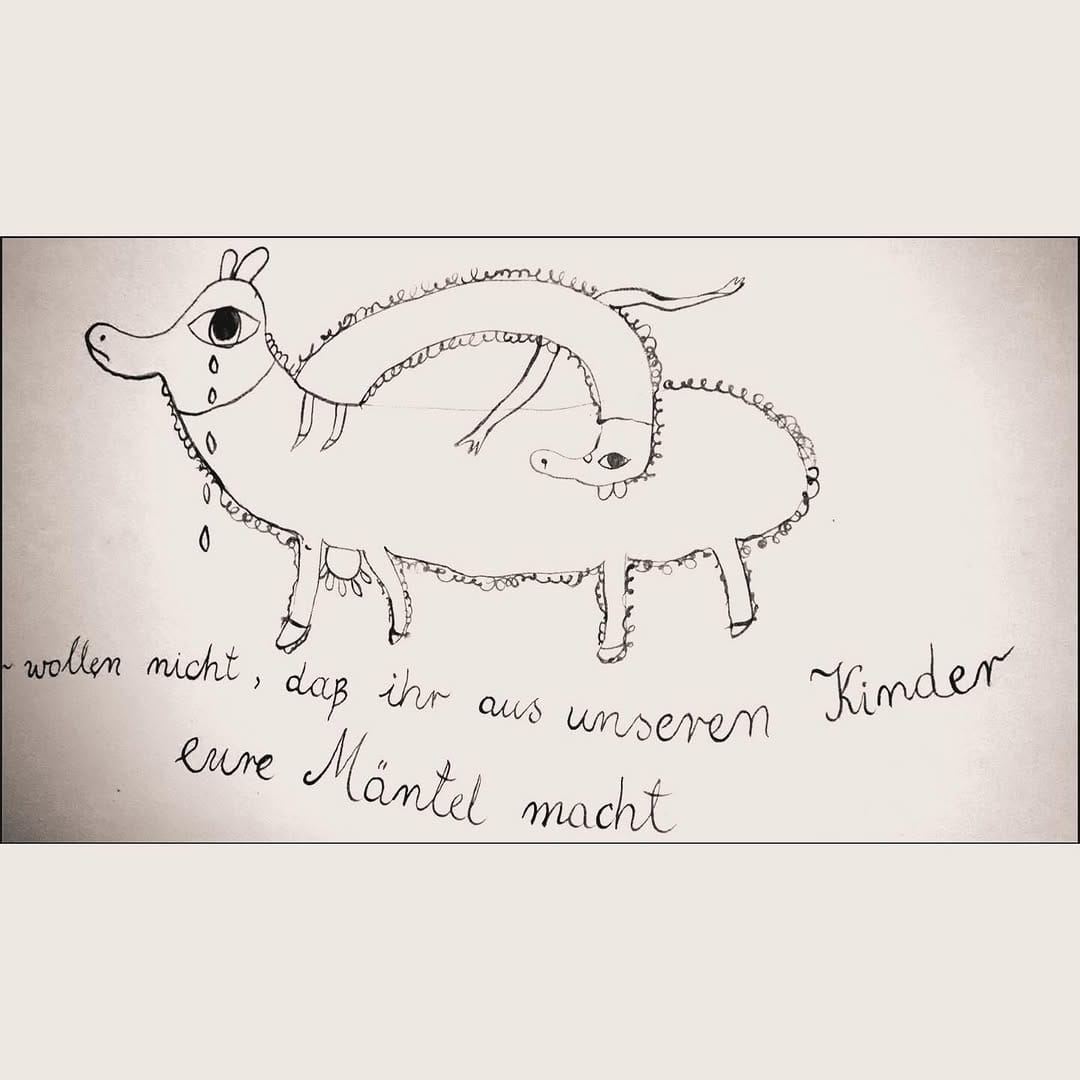 wollen nicht, daß ihr aus unseren Kinder
eure Mäntel macht